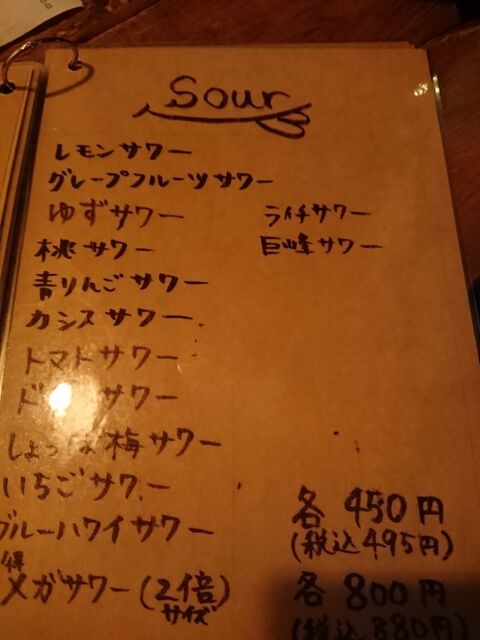 Sour
レモンサワー
グレープフルーツサワー
ゆずサワー ライチサワー
桃サワー 巨峰サワー
青りんごサワー
カシスサワー
トマトサワー
サワー
しょっぱ梅サワー
いちごサワー
ブルーハワイサワー
各 450円
(税込495円)
得
メガサワー(2倍)
サイズ
各 800円
(税込880円)